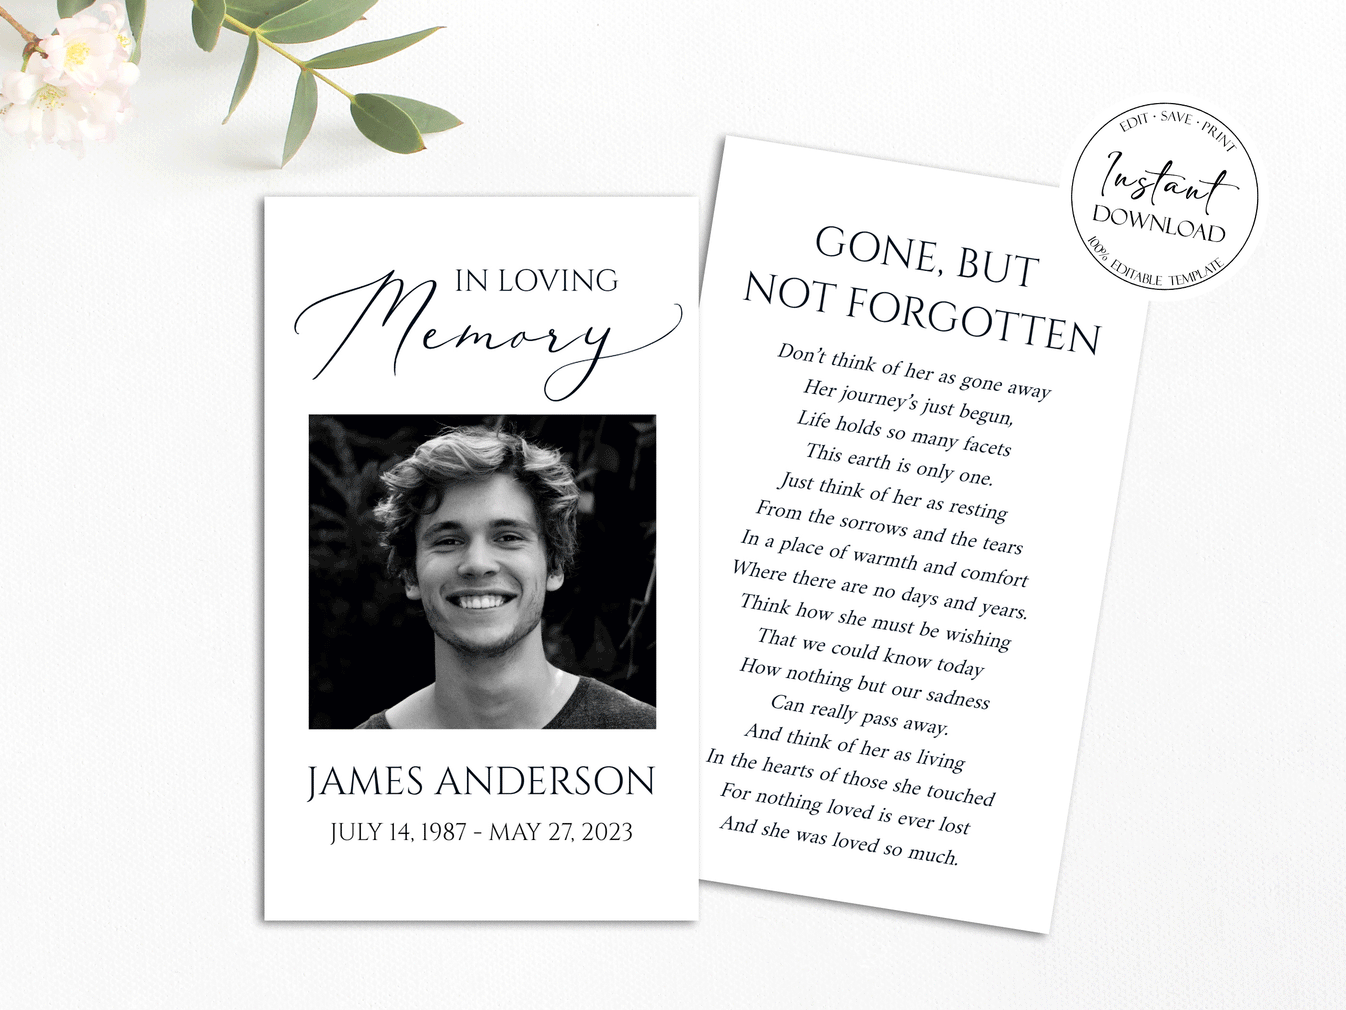 IN LOVING
Memory
JAMES ANDERSON
JULY 14, 1987 - MAY 27, 2023
GONE, BUT
NOT FORGOTTEN
Don't think of her as gone away
Her journey's just begun,
Life holds so many facets
This earth is only one.
Just think of her as resting
From the sorrows and the tears
In a place of warmth and comfort
Where there are no days and years.
Think how she must be wishing
That we could know today
How nothing but our sadness
Can really pass away.
And think of her as living
In the hearts of those she touched
For nothing loved is ever lost
And she was loved so much.
EDIT · SAVE · PRINT
Instant
DOWNLOAD
100% EDITABLE TEMPLATE